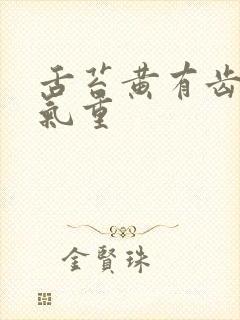 舌苔黄有齿
氣重
金賢珠